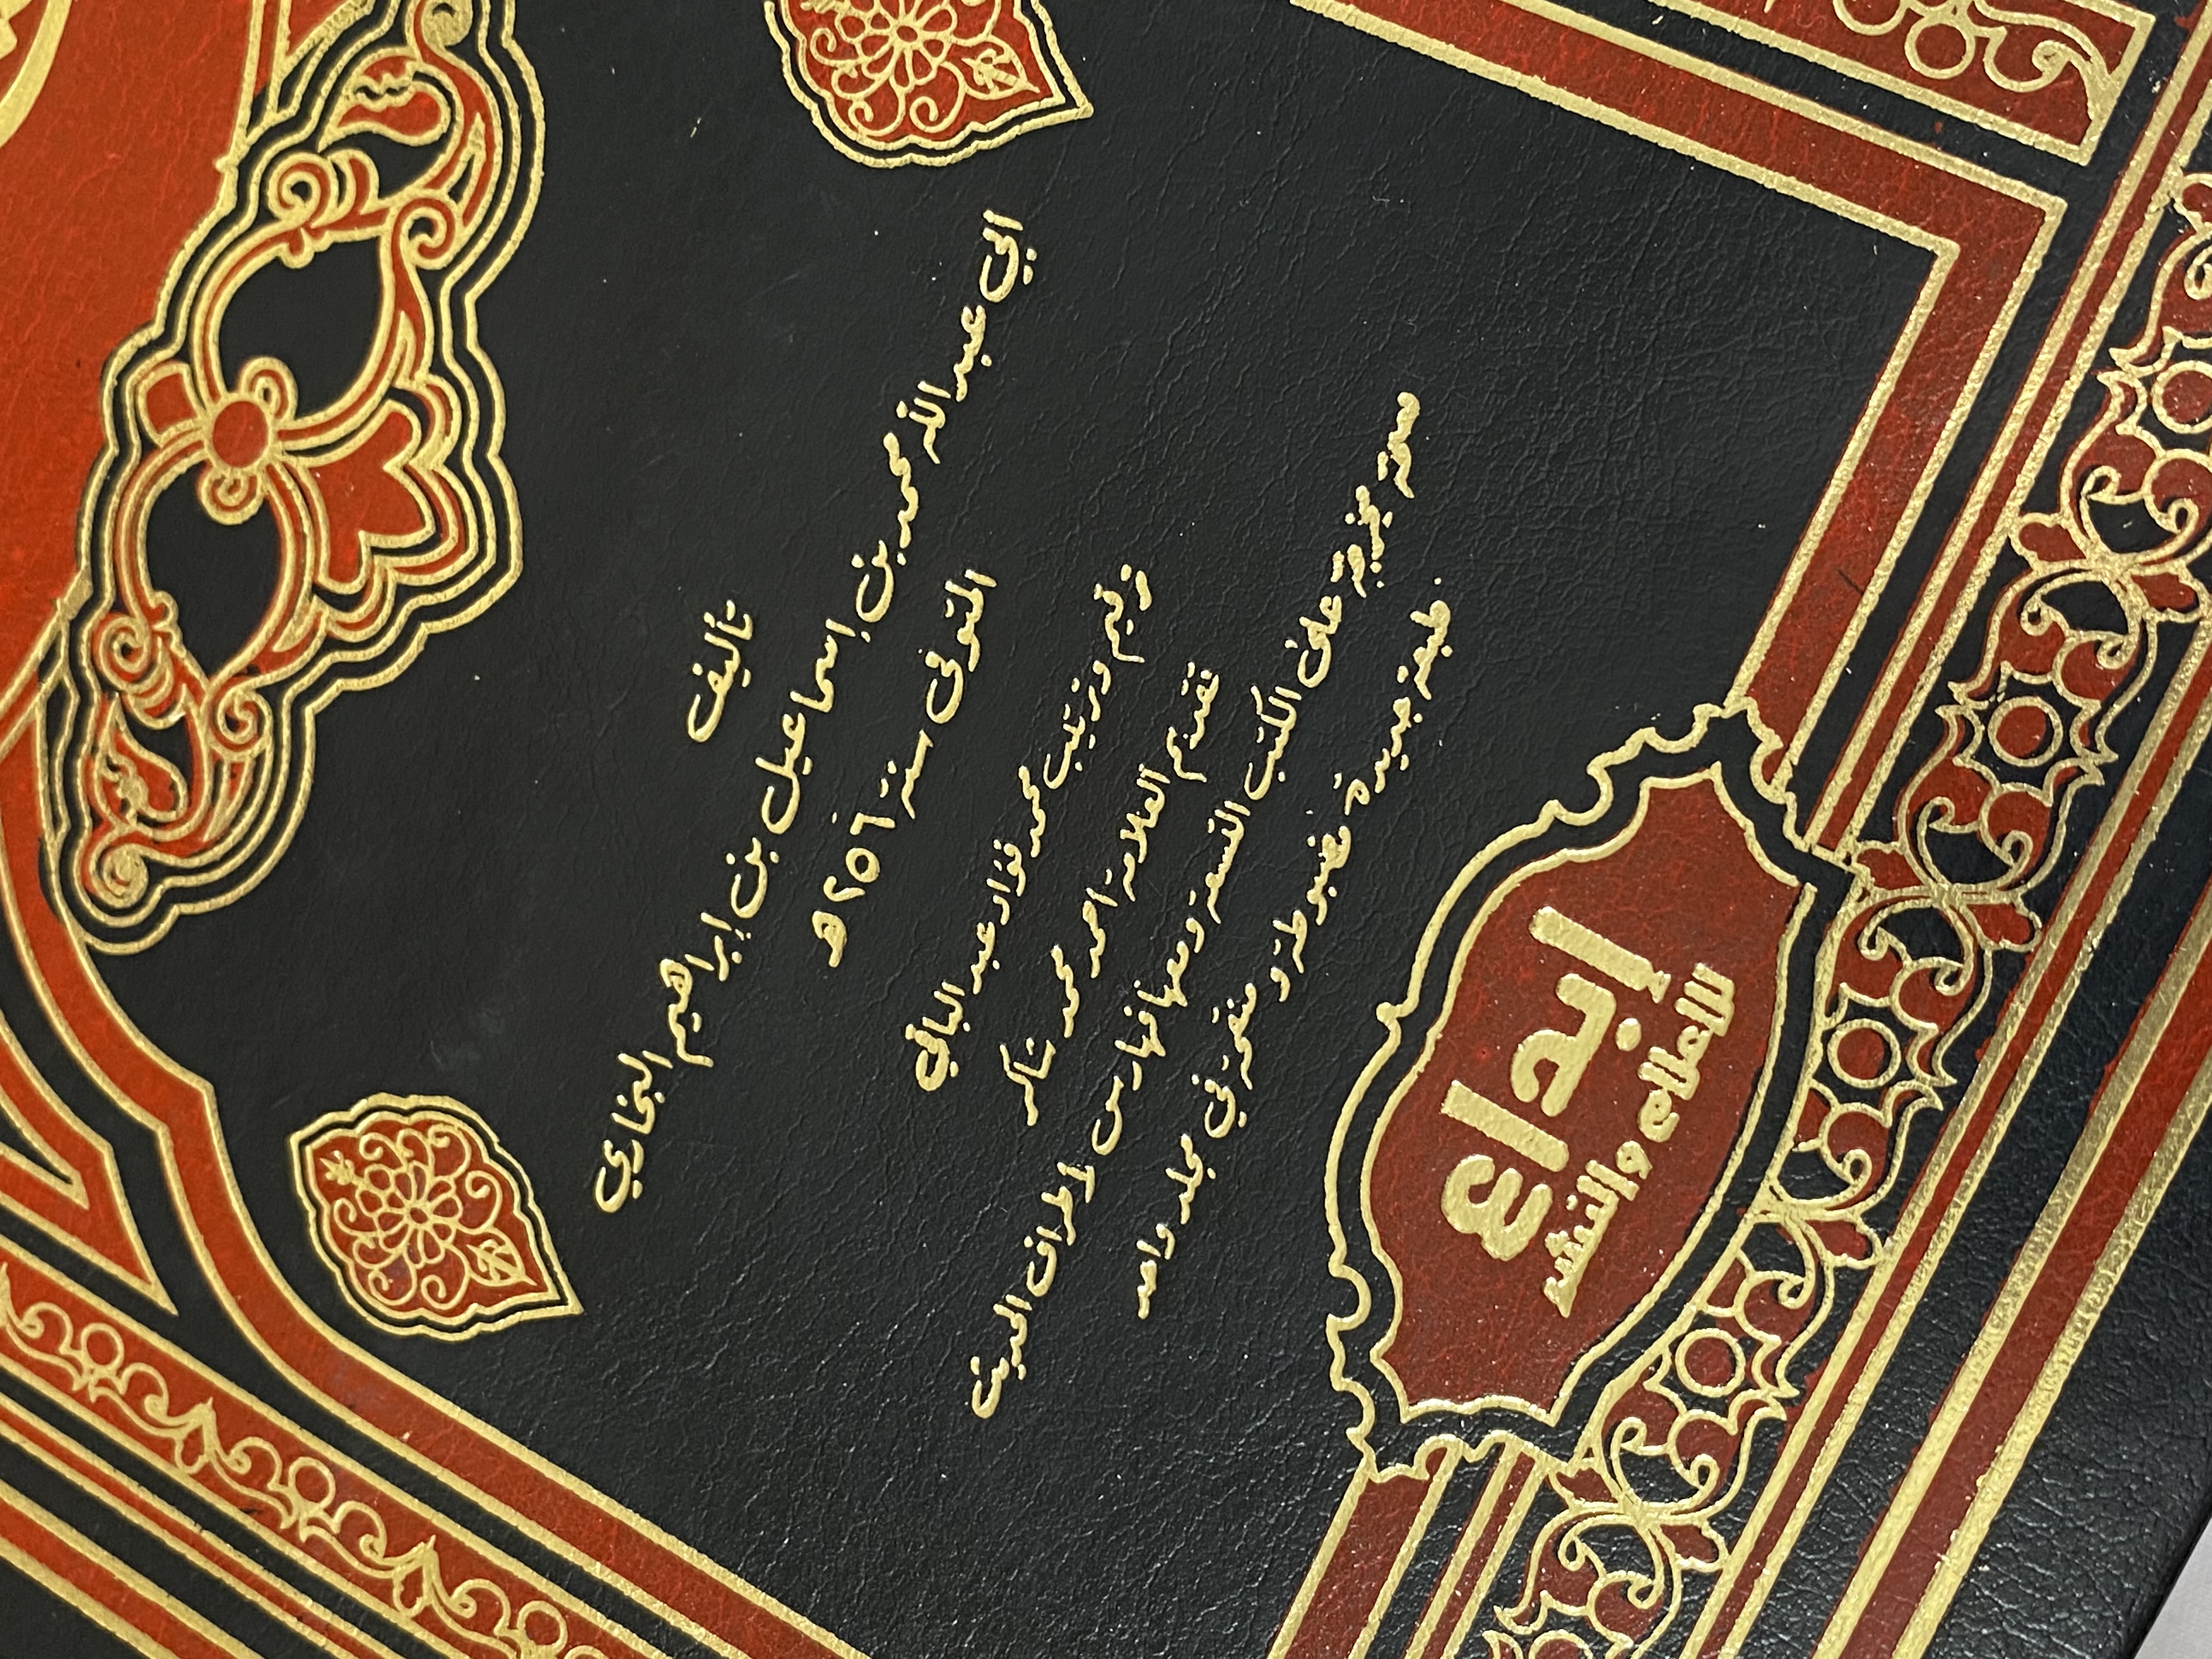 تأليف
أبي عبد الله محمد بن إسماعيل بن إبراهيم البخاري
المتوفى سنة ٢٥٦ هـ
ترقيم وترتيب محمد فؤاد عبد الباقي
تقديم العلامة أحمد محمد شاكر
مخرجة على الكتب التسعة ومعها فهارس لأطراف الحديث
طبعة جديدة مضبوطة و منقحة في مجلد واحد
إبداع
للإعلام والنشر